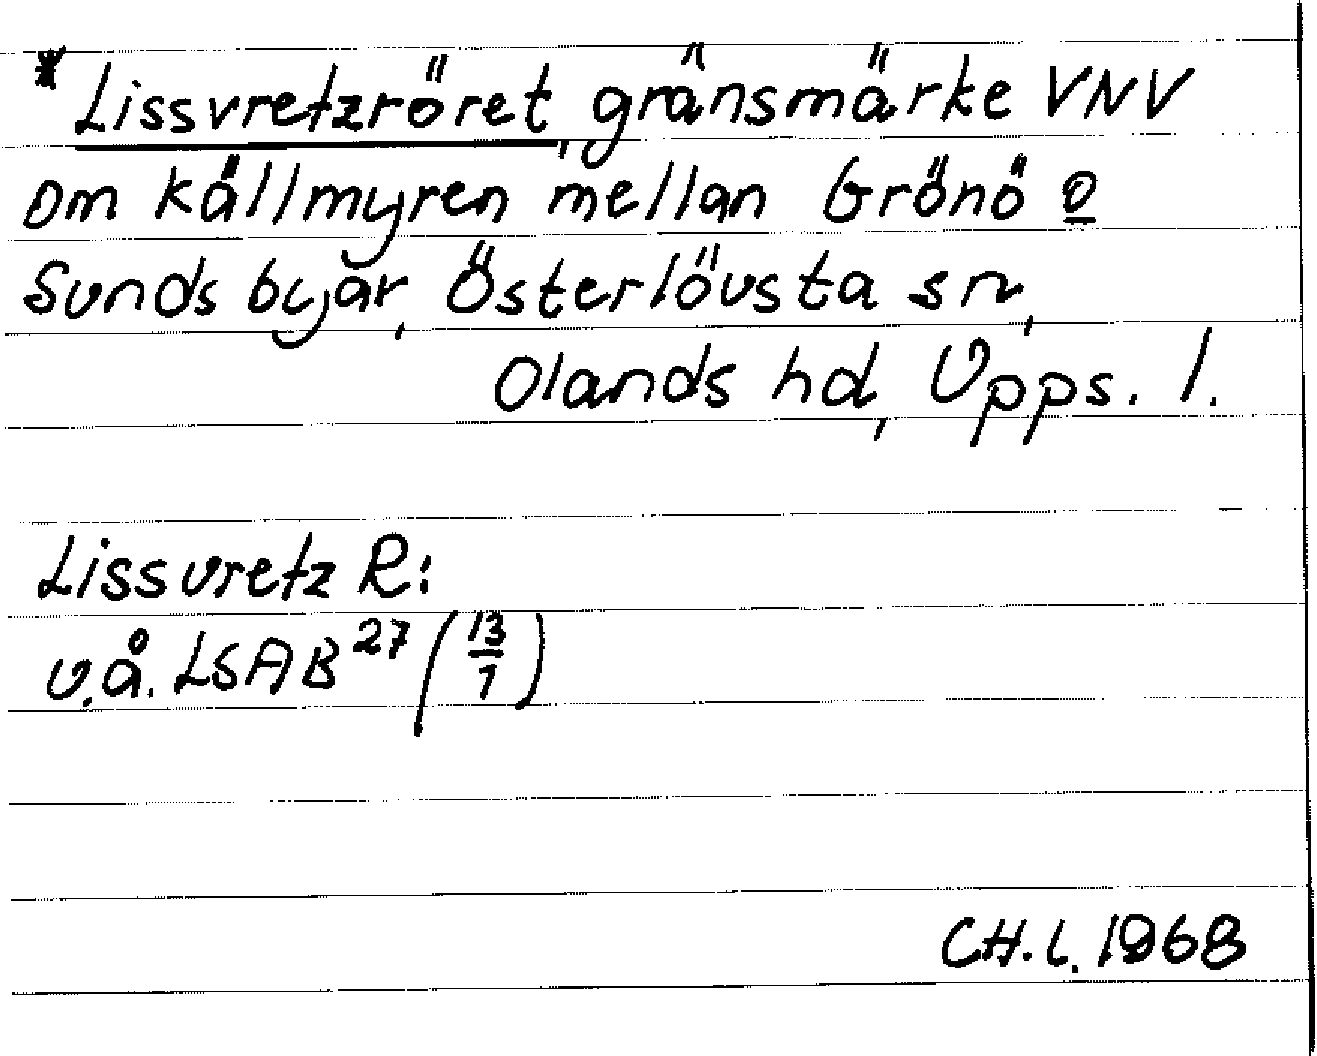 *Lissvretzröret, gränsmärke VNV
om Källmyren mellan Grönö o
Sunds byar, Österlövsta sn,
Olands hd, Upps. l.
Lissvretz R:
v.å. LSA B²⁷ (13/7)
CH.L. 1968